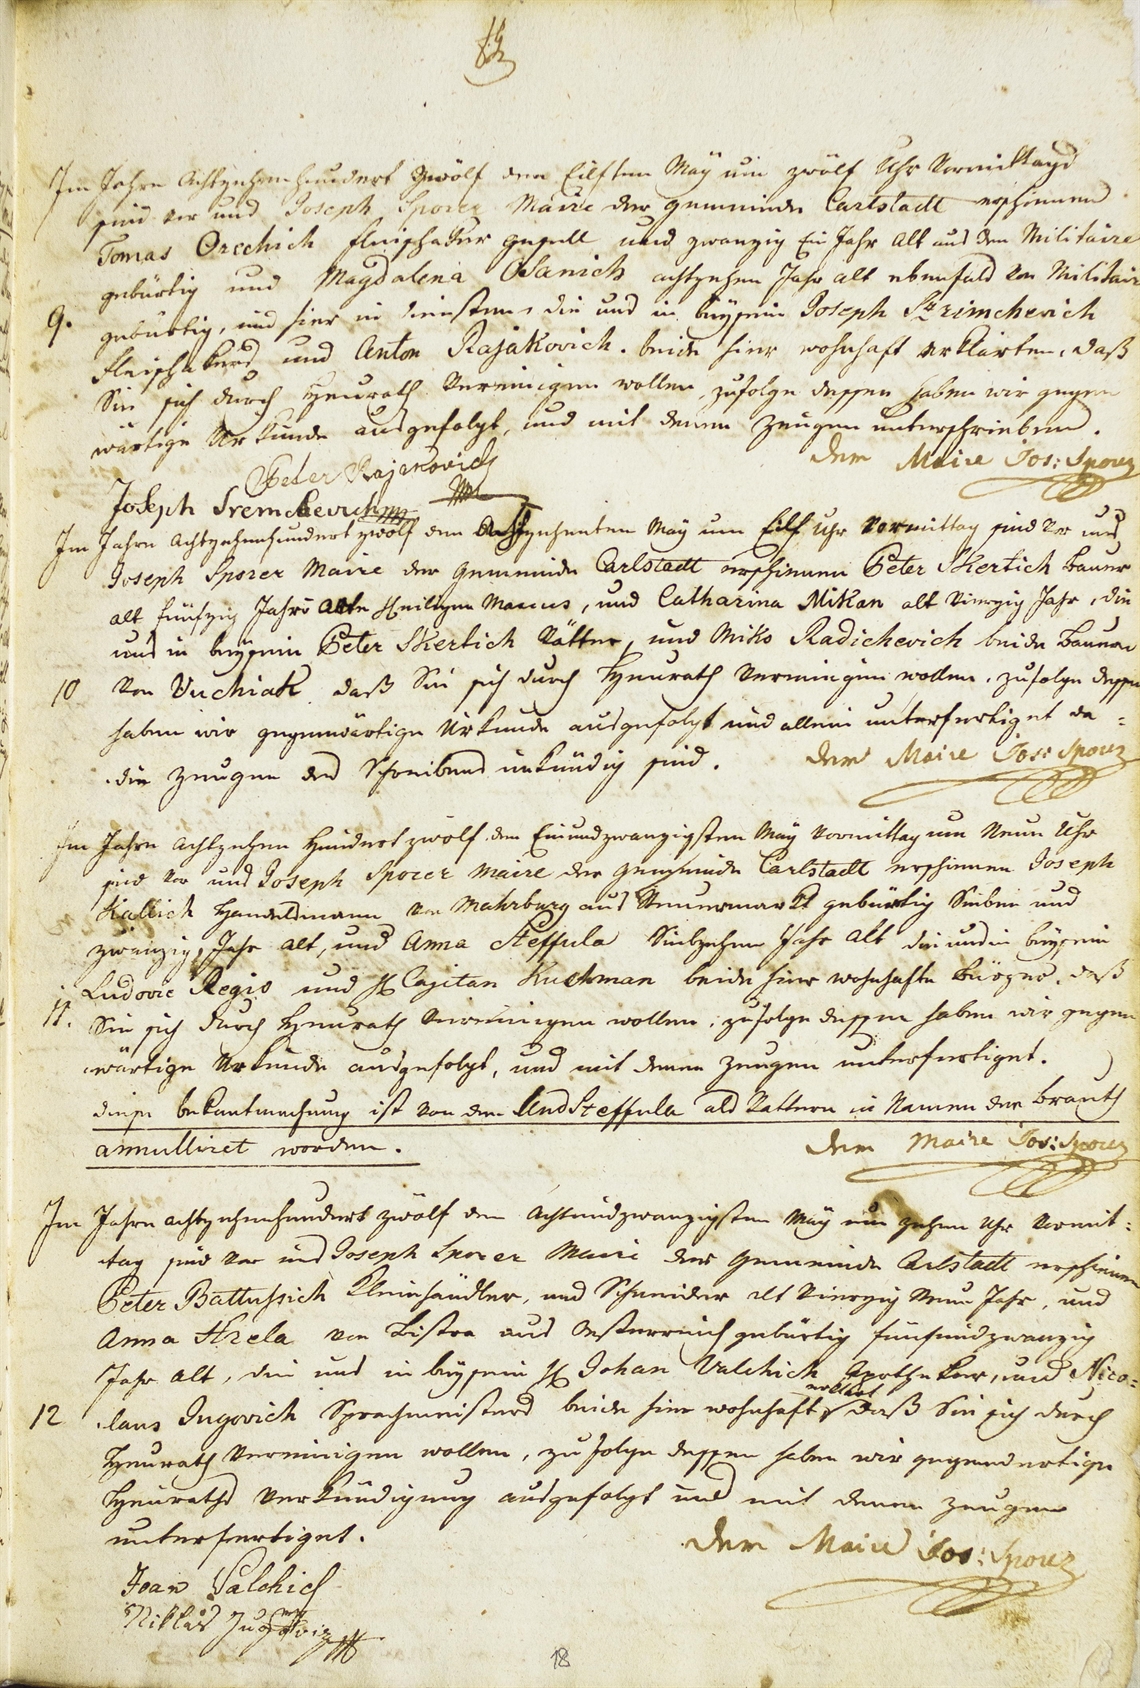 Im Jahre Achtzehenhundert Zwölf den Eilften May um zwölf Uhr Vormittags
sind vor uns Joseph Sporer Maire der Gemeinde Carlstadt erschienen
Tomas Orechich Fleischaker gesell und zwanzig Ein Jahr alt aus dem Militaire
gebürtig und Magdalena Osanich achtzehen Jahr alt ebenfals von Militair
9. gebürtig, und hier in diensten, die uns in beysein Joseph Strimchevich
Fleischakers und Anton Rajakovich. beide hier wohnhaft erklärten, daß
Sie sich durch Heurath Vereinigen wollen, zufolge dessen haben wir gegen
wärtige Urkunde ausgefolgt, und mit denen Zeugen unterschrieben.
Der Maire Jos: Sporer
Peter Rajakovich
Joseph Sremchevich
Im Jahre Achtzehenhundert zwölf den Achtzehenten May um Eilf Uhr Vormittag sind vor uns
Joseph Sporer Maire der Gemeinde Carlstadt erschienen Peter Skertich Bauer
alt fünfzig Jahre Heiligen Marcus, und Catharina Mikan alt Vierzig Jahr, die
uns in beysein Peter Skertich Vatter, und Miko Radichevich beide Bauern
10 von Vuchiak daß Sie sich durch Heurath Vereinigen wollen, zufolge dessen
haben wir gegenwärtige Urkunde ausgefolgt und allein unterfertiget da =
die Zeugen des Schreibens unkündig sind. Der Maire Jos: Sporer
Im Jahre Achtzehen Hundert zwölf den Einundzwanzigsten May Vormittag um Neun Uhr
sind vor uns Joseph Sporer Maire der Gemeinde Carlstadt erschienen Joseph
Kallich Handelsmann von Mahrburg aus Steuermarkt gebürtig Sieben und
zwanzig Jahr alt, und Anna Steffula Siebzehen Jahr alt die uns in beysein
Ludovic Regis und H Cajitan Kuchman beide hier wohnhafte Bürger, daß
11. Sie sich durch Heurath Vereinigen wollen, zufolge dessen haben wir gegen
wärtige Urkunde ausgefolgt, und mit denen Zeugen unterfertiget.
diese bekantmachung ist von dem And Steffula als Vattern in Namen der Brauth
annulliret worden. Der Maire Jos: Sporer
Im Jahre achtzehenhundert zwölf den Achtundzwanzigsten May um zehen Uhr Vormit:
tag sind vor uns Joseph Sporer Maire der Gemeinde Carlstadt erschienen
Peter Battussich Kleinhändler, und Schneider alt Vierzig Neun Jahr, und
Anna Strela von Bistra aus Oesterreich gebürtig fünfundzwanzig
Jahr alt, die uns in beysein H Johan Valchich Apotheker, und Nico=
12 laus Jugovich Sprachmeisters beide hier wohnhaft erklärt daß Sie sich durch
Heurath Vereinigen wollen, zufolge dessen haben wir gegenwertige
Heuraths Verkündigung ausgefolgt und mit denen Zeugen
unterfertiget. Der Maire Jos: Sporer
Joan Valchich
Niklas Jugovich
18